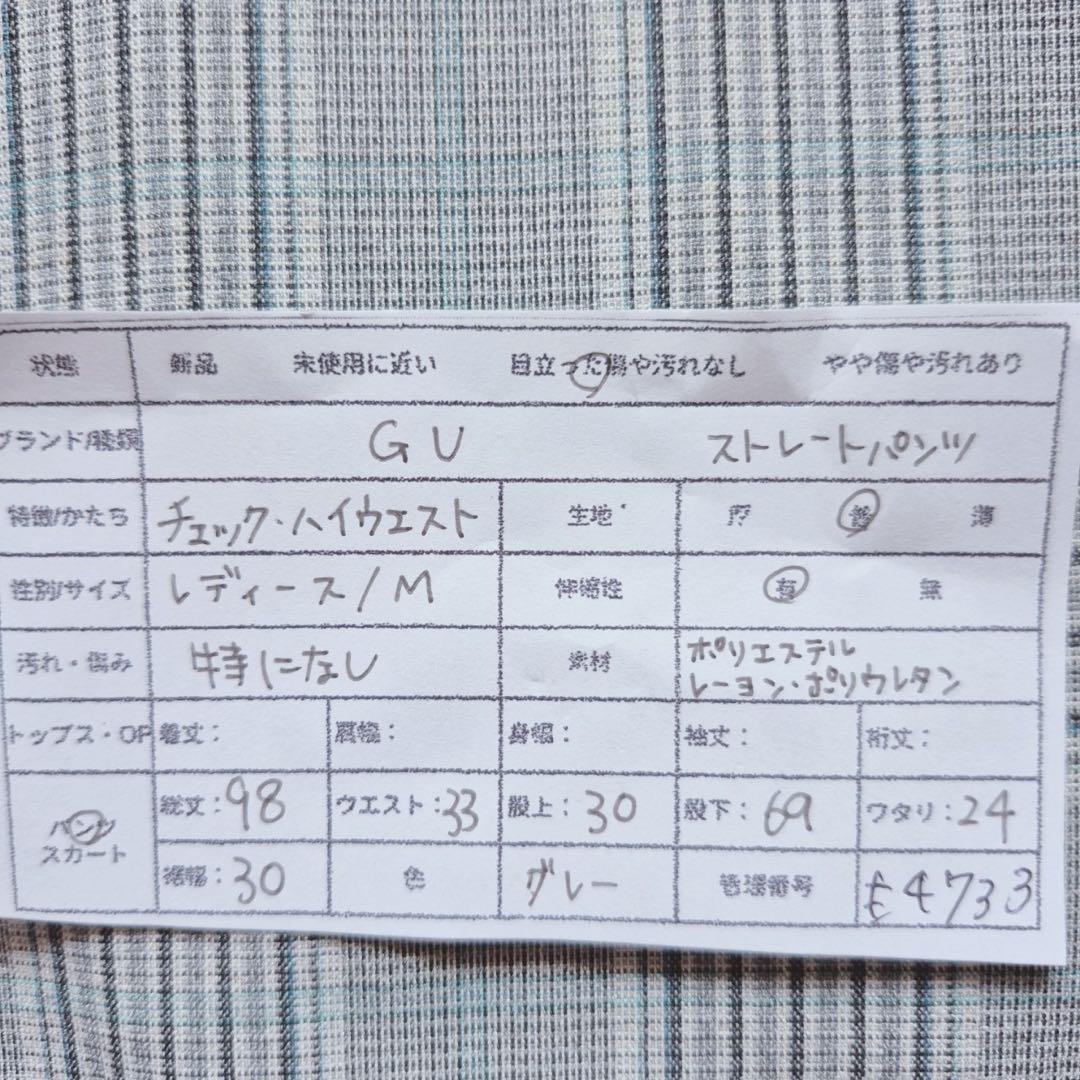 状態 新品 未使用に近い 目立った傷や汚れなし やや傷や汚れあり
ブランド/種類 GU ストレートパンツ
特徴/かたち チェック・ハイウエスト 生地 厚 普 薄
性別/サイズ レディース/M 伸縮性 有 無
汚れ・傷み 特になし 素材 ポリエステル
レーヨン・ポリウレタン
トップス・OP 着丈: 肩幅: 身幅: 袖丈: 裄丈:
パンツ 総丈:98 ウエスト:33 股上:30 股下:69 ワタリ:24
スカート
裾幅:30 色 グレー 管理番号 4733